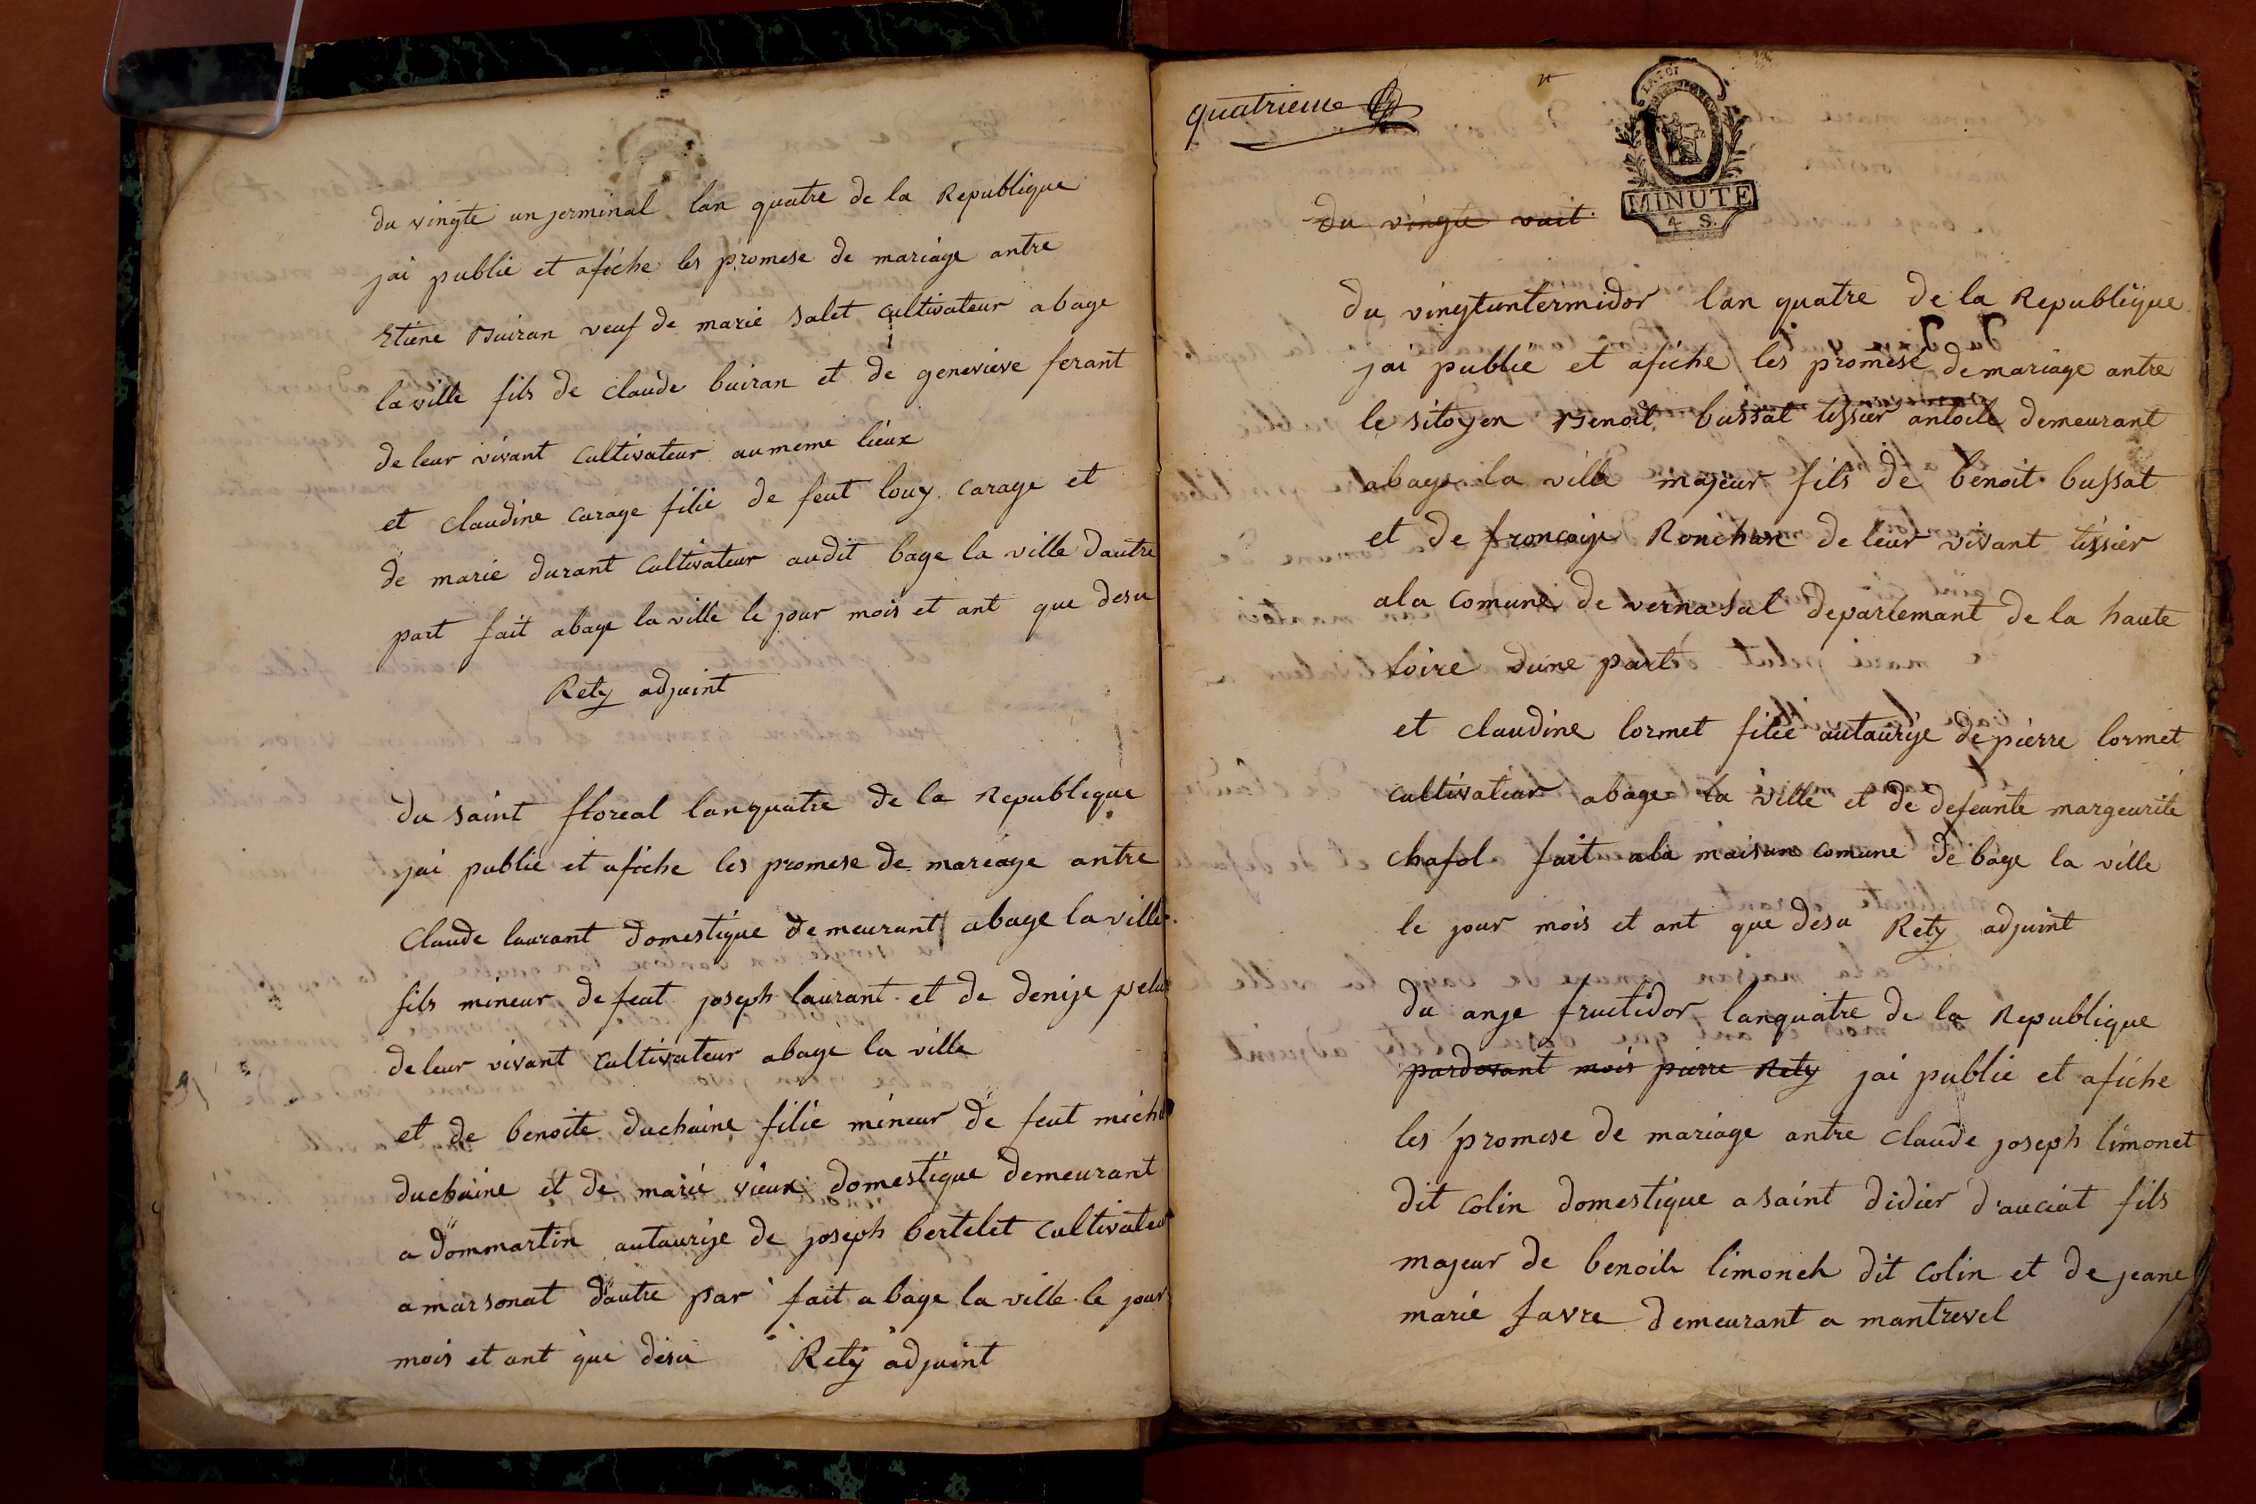 du vingte un jerminal lan quatre de la Republique
jai publié et afiche les promese de mariage antre
Etiene Buiran veuf de marie Salet cultivateur abage
laville fils de claude buiran et de genevieve ferant
de leur vivant cultivateur aumeme lieux
et claudine carage filie de feut louy carage et
de marie durant cultivateur audit bage la ville dautre
part fait abage la ville le jour mois et ant que desu
Rety adjuint
du saint floreal lanquatre de la Republique
jai publié et afiche les promese de mariage antre
claude laurant domestique demeurant abage la ville
fils mineur de feut joseph laurant et de denise pelu
deleur vivant cultivateur abage la ville
et de benoite duchaine filie mineur de feut miche
duchaine et de marie vieux domestique demeurant
a dommartin autaurise de joseph bertelet cultivateur
a marsonat dautre par fait a bage la ville le jour
mois et ant que desu Rety adjuint
quatrieme
MINUTE
4 S.
du vingte vuit
du vingtuntermidor lan quatre de la Republique
jai publie et afiche les promese de mariage antre
le sitoyen Benoit bussat tissier antoile demeurant
abage la ville majeur fils de benoit bussat
et de francoise Ronchon de leur vivant tissier
ala comune de vernasal departemant de la haute
loire dune part
et claudine lormet filie autaurise de pierre lormet
cultivateur abage la ville et de defeunte margeurite
chafol fait ala maison comune de bage la ville
le jour mois et ant que desu Rety adjuint
du onze fructidor lanquatre de la Republique
pardevant mois pierre Rety jai publie et afiche
les promese de mariage antre claude joseph limonet
dit colin domestique a saint didier d'auciat fils
majeur de benoit limonet dit colin et de jeane
marie favre demeurant a mantrevel